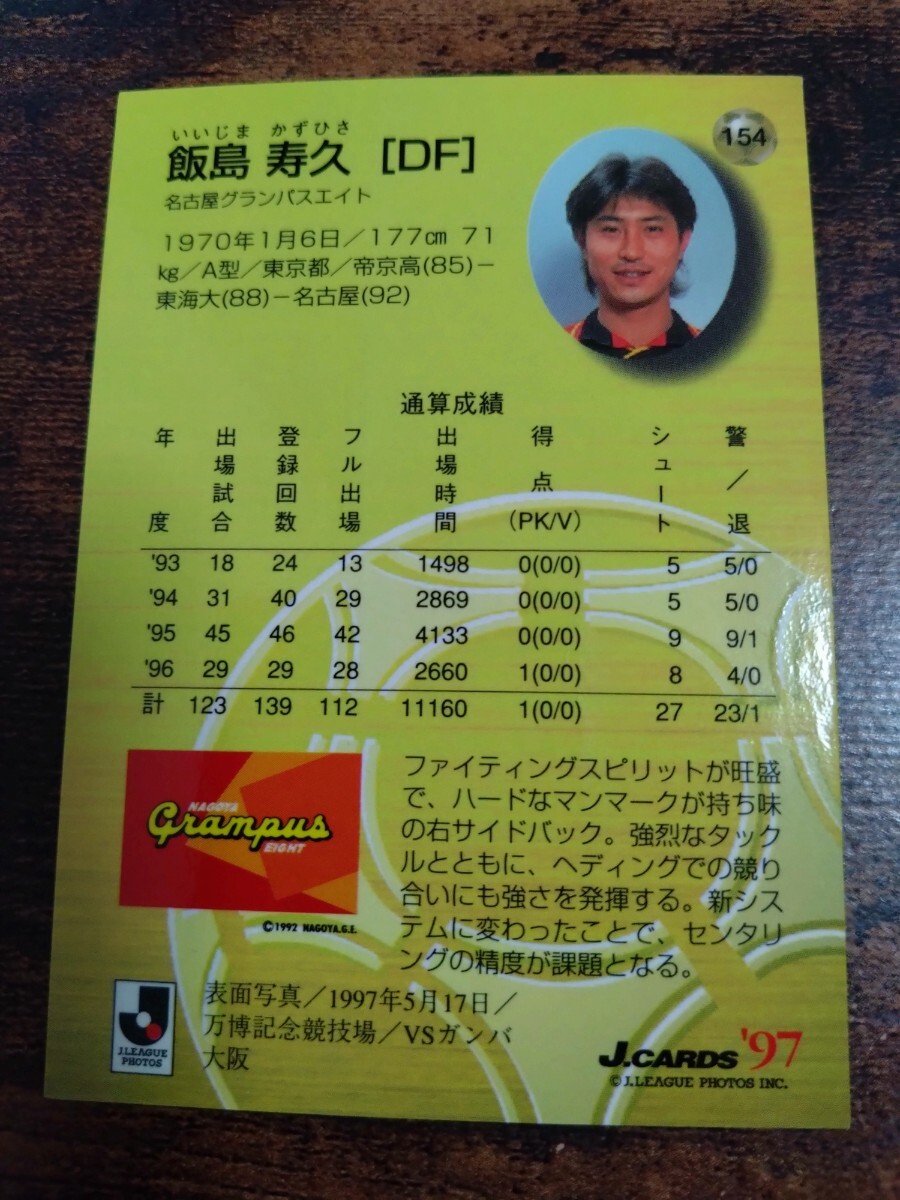 いいじま かずひさ
飯島 寿久 [DF]
154
名古屋グランパスエイト
1970年1月6日／177cm 71
kg／A型／東京都／帝京高(85)−
東海大(88)−名古屋(92)
通算成績
年度 出場試合 登録回数 フル出場 出場時間 得点(PK/V) シュート 警／退
'93 18 24 13 1498 0(0/0) 5 5/0
'94 31 40 29 2869 0(0/0) 5 5/0
'95 45 46 42 4133 0(0/0) 9 9/1
'96 29 29 28 2660 1(0/0) 8 4/0
計 123 139 112 11160 1(0/0) 27 23/1
NAGOYA
Grampus
EIGHT
©1992 NAGOYA.G.E.
ファイティングスピリットが旺盛
で、ハードなマンマークが持ち味
の右サイドバック。強烈なタック
ルとともに、ヘディングでの競り
合いにも強さを発揮する。新シス
テムに変わったことで、センタリ
ングの精度が課題となる。
J.LEAGUE
PHOTOS
表面写真／1997年5月17日／
万博記念競技場／VSガンバ
大阪
J.CARDS '97
©J.LEAGUE PHOTOS INC.